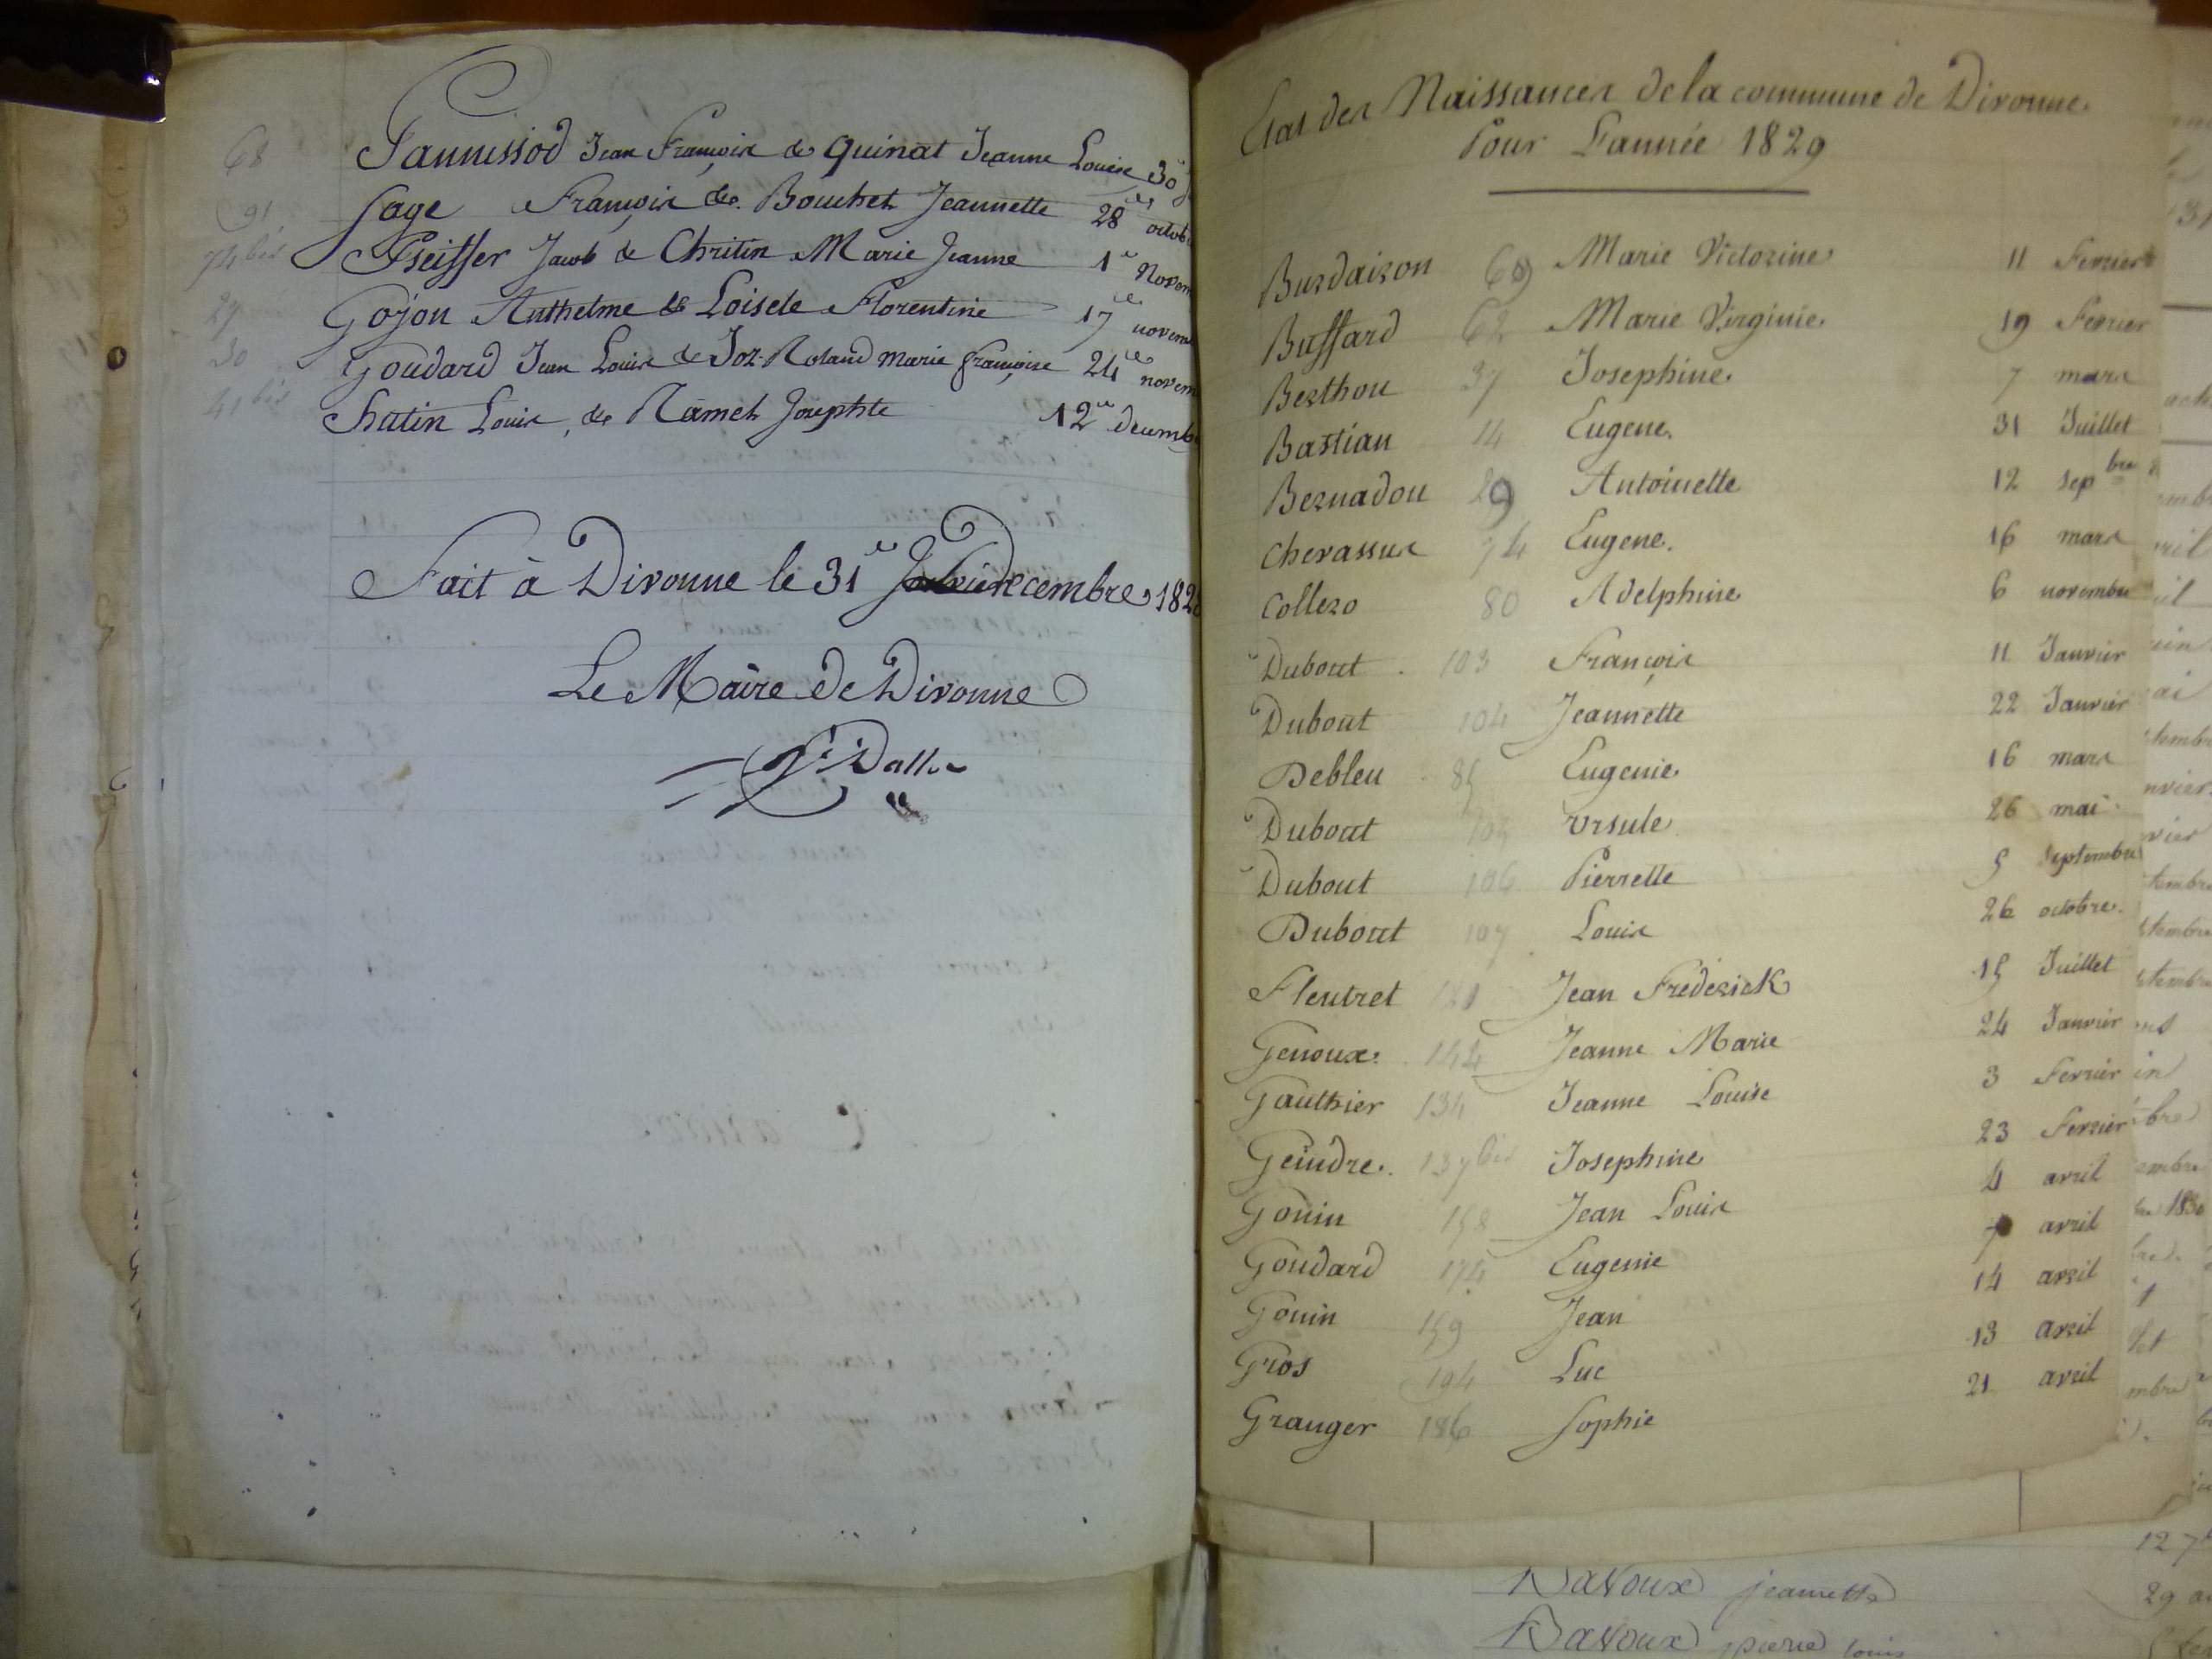 68 Jannissod Jean François & Quinat Jeanne Louise 30
91 Sage François & Bouchet Jeannette 28 octob
74 bis Pfeiffer Jacob & Chritin Marie Jeanne 1er Novem
29 Gojon Anthelme & Loisele Florentine 17 novem
30 Goudard Jean Louis & Joz-Roland Marie Françoise 24 novem
41 bis Chatin Louis, & Ramel Josephte 12 decemb
Fait à Divonne le 31 decembre 182
Le Maire de Divonne
Etat des Naissances de la commune de Divonne
Pour L'année 1829
Burdairon 69 Marie Victorine 11 Fevrier
Buffard 62 Marie Virginie 19 Fevrier
Berthou 37 Josephine 7 mars
Bastian 14 Eugene 31 Juillet
Bernadou 29 Antoinette 12 sepbre
Chevassus 74 Eugene 16 mars
Collero 80 Adelphine 6 novembre
Dubout 103 François 11 Janvier
Dubout 104 Jeannette 22 Janvier
Debleu 85 Eugenie 16 mars
Dubout 105 Ursule 26 mai
Dubout 106 Pierrette 5 Septembre
Dubout 107 Louis 26 octobre
Fleutret 121 Jean Frederick 15 Juillet
Genoux 144 Jeanne Marie 24 Janvier
Gauthier 134 Jeanne Louise 3 Fevrier
Geindre 137 bis Josephine 23 Fevrier
Gouin 158 Jean Louis 4 avril
Goudard 174 Eugenie 7 avril
Gouin 159 Jean 14 avril
Gros 194 Luc 13 avril
Granger 186 Sophie 21 avril
Davoux jeannette
Davoux pierre louis